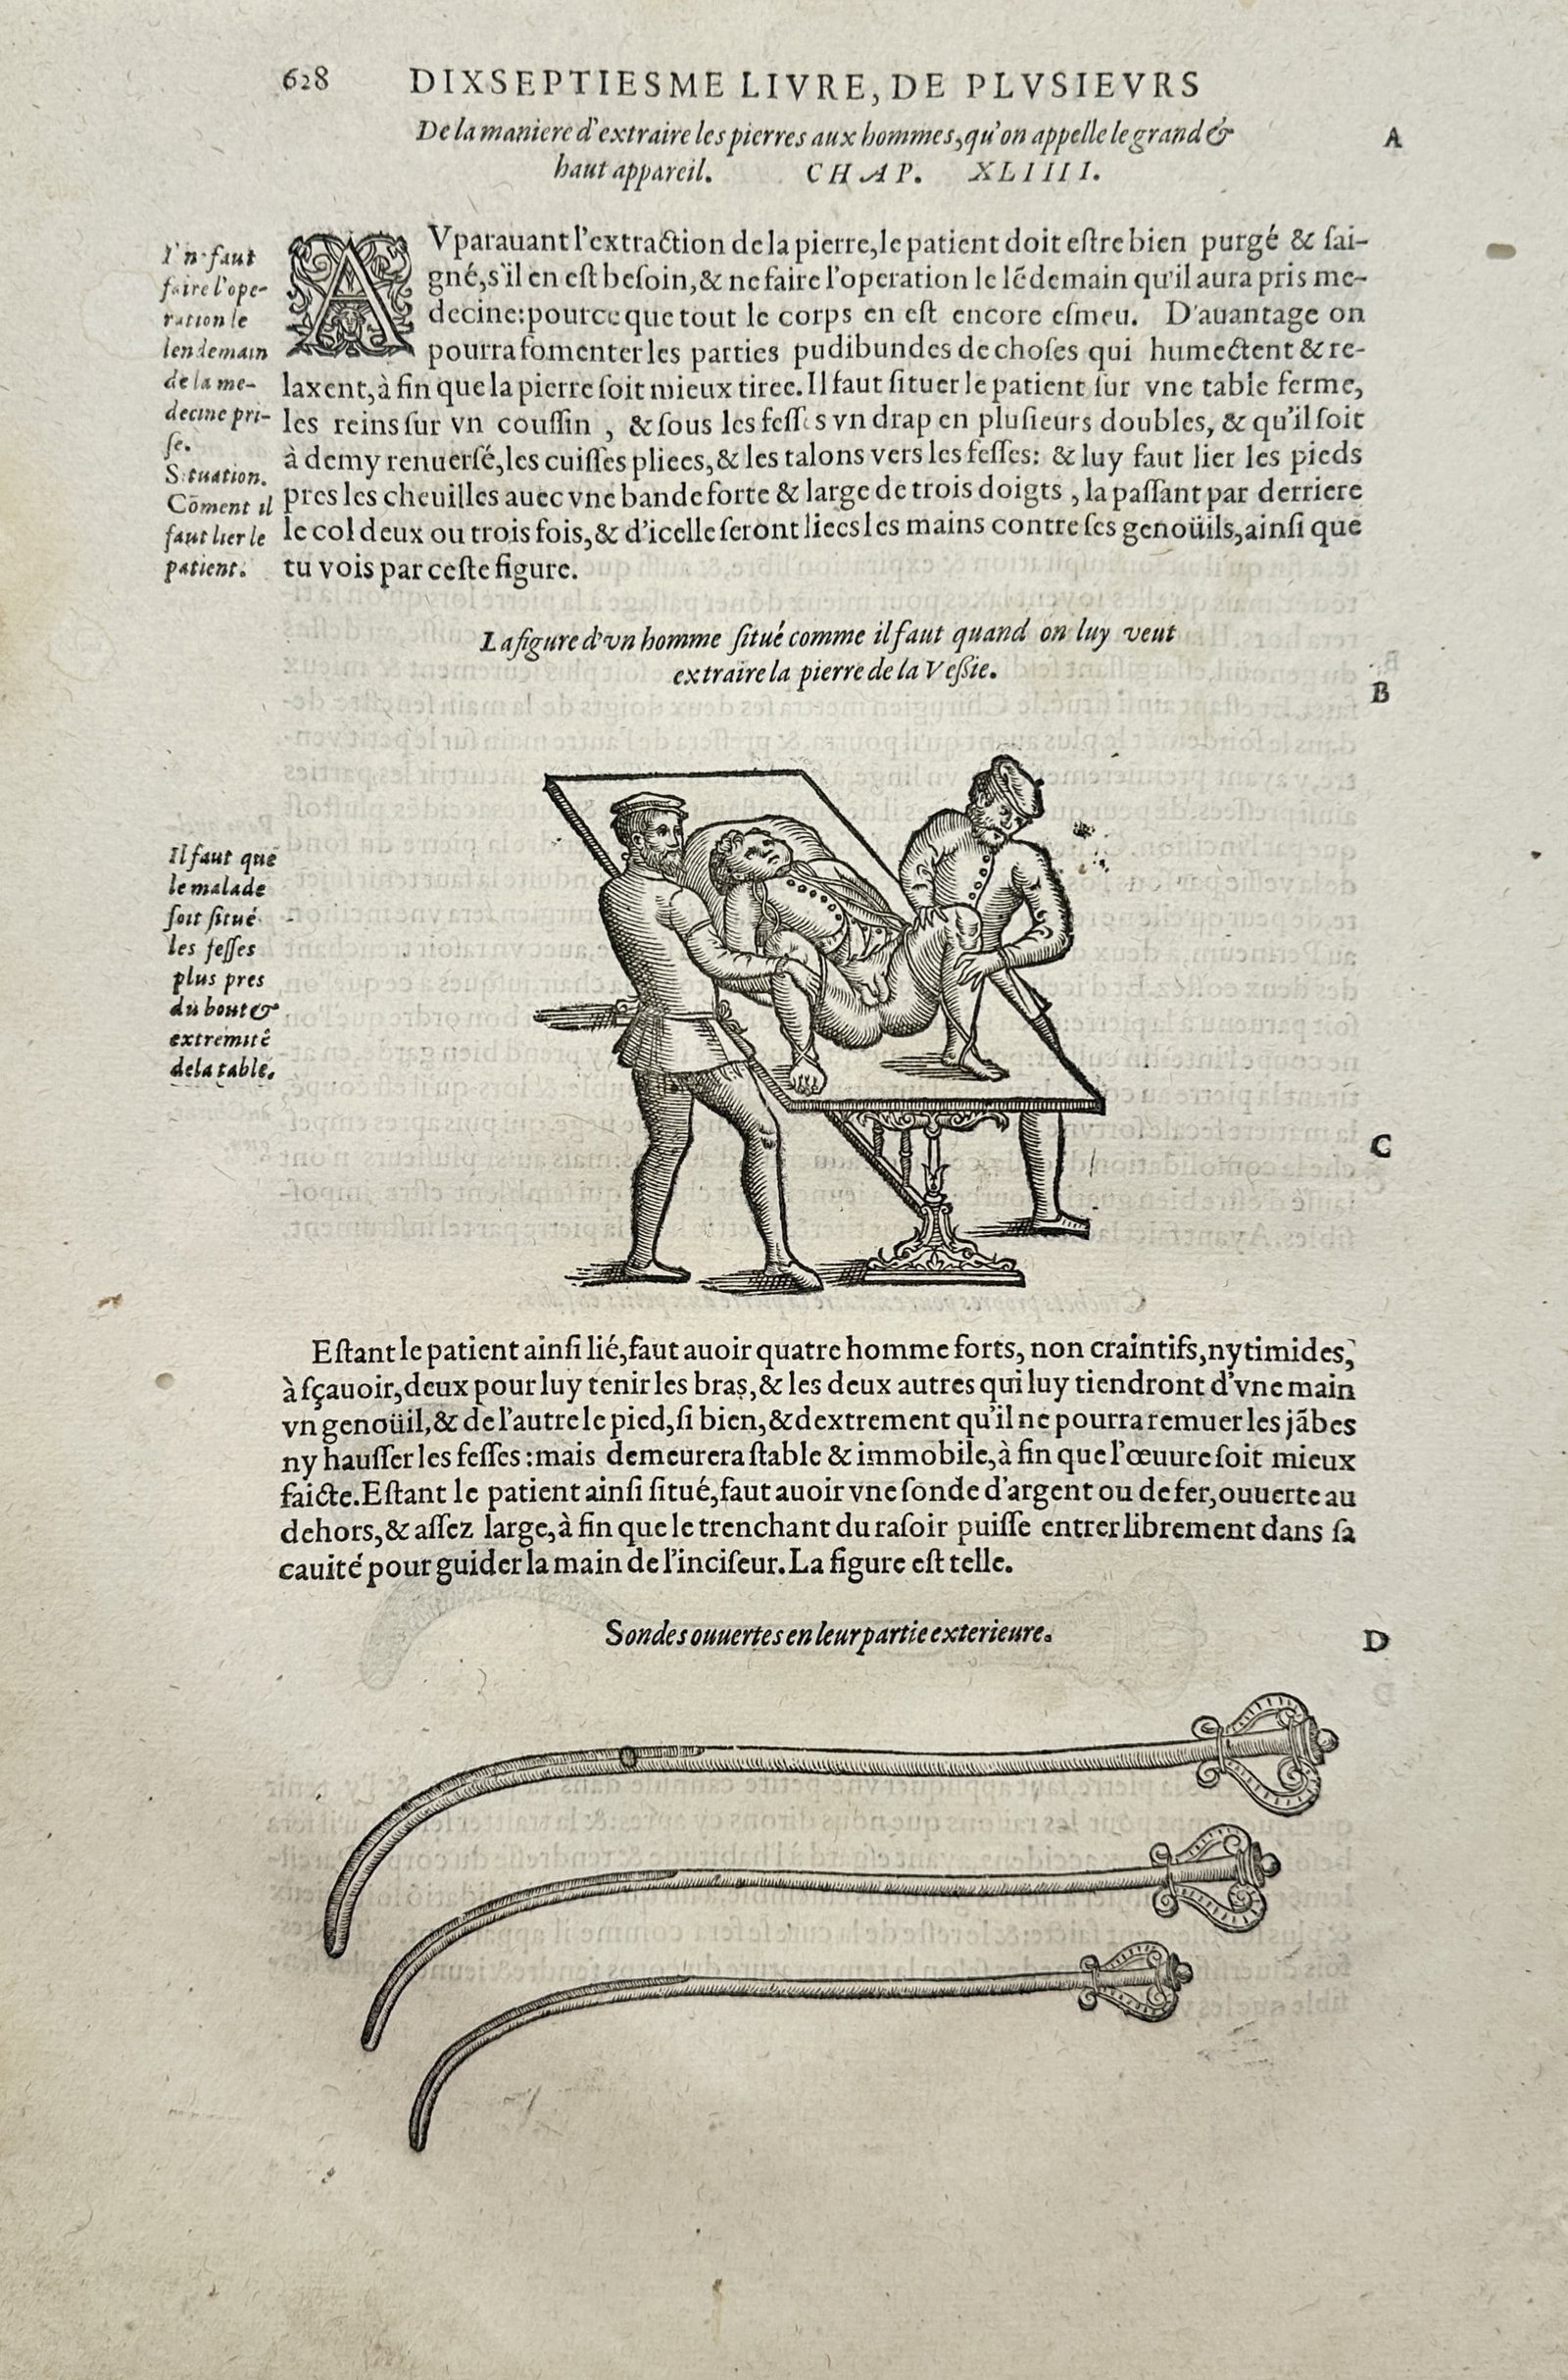 628 DIXSEPTIESME LIVRE, DE PLVSIEVRS
De la maniere d'extraire les pierres aux hommes, qu'on appelle le grand &
haut appareil. CHAP. XLIIII.
A
I'n faut
faire l'ope-
ration le
lendemain
de la me-
decine pri-
se.
Situation.
Cõment il
faut lier le
patient.
AVparauant l'extraction de la pierre, le patient doit estre bien purgé & sai-
gné, s'il en est besoin, & ne faire l'operation le lẽdemain qu'il aura pris me-
decine: pource que tout le corps en est encore esmeu. D'auantage on
pourra fomenter les parties pudibundes de choses qui humectent & re-
laxent, à fin que la pierre soit mieux tiree. Il faut situer le patient sur vne table ferme,
les reins sur vn coussin, & sous les fesses vn drap en plusieurs doubles, & qu'il soit
à demy renuersé, les cuisses pliees, & les talons vers les fesses: & luy faut lier les pieds
pres les cheuilles auec vne bande forte & large de trois doigts, la passant par derriere
le col deux ou trois fois, & d'icelle seront liees les mains contre ses genoüils, ainsi que
tu vois par ceste figure.
La figure d'vn homme situé comme il faut quand on luy veut
extraire la pierre de la Vessie.
B
Il faut que
le malade
soit situé
les fesses
plus pres
du bout &
extremité
de la table.
C
Estant le patient ainsi lié, faut auoir quatre homme forts, non craintifs, ny timides,
à sçauoir, deux pour luy tenir les bras, & les deux autres qui luy tiendront d'vne main
vn genoüil, & de l'autre le pied, si bien, & dextrement qu'il ne pourra remuer les jãbes
ny hausser les fesses: mais demeurera stable & immobile, à fin que l'œuure soit mieux
faicte. Estant le patient ainsi situé, faut auoir vne sonde d'argent ou de fer, ouuerte au
dehors, & assez large, à fin que le trenchant du rasoir puisse entrer librement dans sa
cauité pour guider la main de l'inciseur. La figure est telle.
Sondes ouuertes en leur partie exterieure.
D